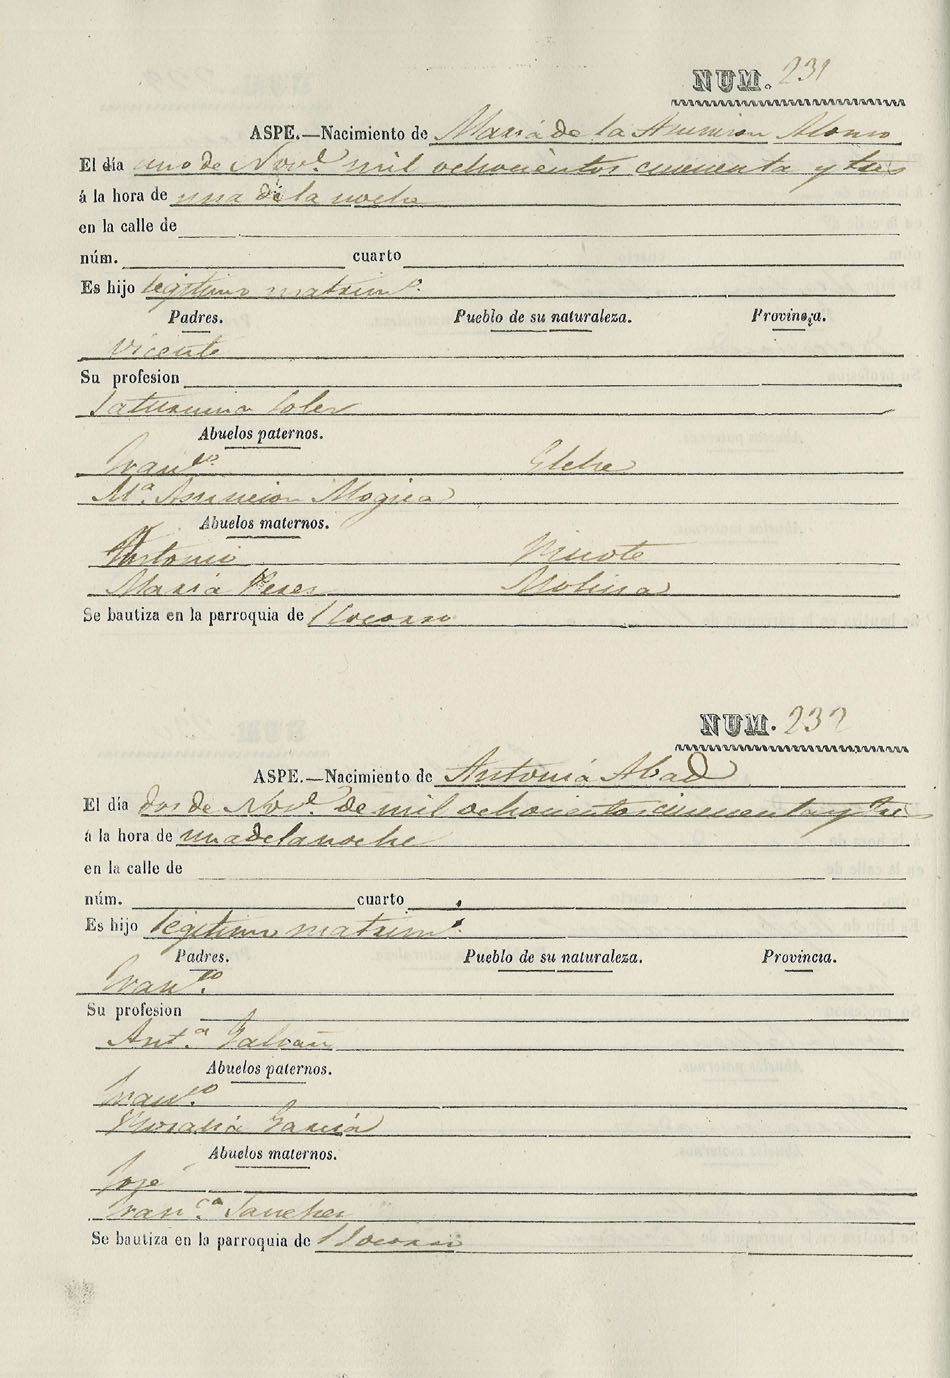 NUM. 231
ASPE.—Nacimiento de Maria de la Asuncion Alonso
El día uno de Nov.e mil ochocientos cincuenta y tres
á la hora de una de la noche
en la calle de
núm. cuarto
Es hijo legitimo matrim.o
Padres. Pueblo de su naturaleza. Provincia.
Vicente
Su profesion
Saturnina Soler
Abuelos paternos.
Fran.co Elche
M.a Asuncion Mogica
Abuelos maternos.
Antonio
Maria Peres Molina
Se bautiza en la parroquia de Socorro
NUM. 232
ASPE.—Nacimiento de Antonia Abad
El día dos de Nov.e de mil ochocientos cincuenta y tres
á la hora de una de la noche
en la calle de
núm. cuarto
Es hijo legitimo matrim.o
Padres. Pueblo de su naturaleza. Provincia.
Fran.co
Su profesion
Ant.a Galvañ
Abuelos paternos.
Fran.co
Rosalia Garcia
Abuelos maternos.
José
Fran.ca Sanches
Se bautiza en la parroquia de Socorro